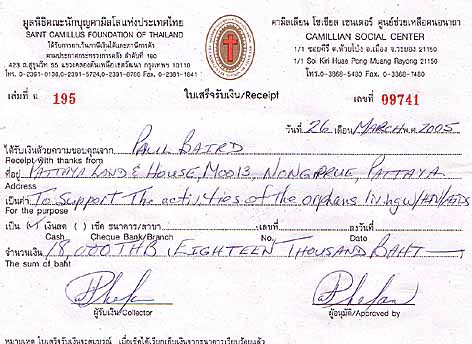 มูลนิธิคณะนักบุญคามิลโลแห่งประเทศไทย
SAINT CAMILLUS FOUNDATION OF THAILAND
ได้รับการยกเว้นภาษีเงินได้และภาษีการค้า
ตามประกาศกระทรวงการคลัง ลำดับที่
423 ถ.สุขุมวิท 55 แขวงคลองตันเหนือ เขตวัฒนา กรุงเทพฯ 10110
โทร. 0-2391-0136, 0-2391-5724, 0-2391-0760 Fax. 0-2391-1641
คามิลเลียน โซเชียล เซนเตอร์ ศูนย์ช่วยเหลือคนอนาถา
CAMILLIAN SOCIAL CENTER
1/1 ซอยคีรี ต.ห้วยโป่ง อ.เมือง จ.ระยอง 21150
1/1 Soi Kiri Huae Pong Muang Rayong 21150
โทร.0-3868-5480 Fax. 0-3868-7480
เล่มที่ ฉ. 195
ใบเสร็จรับเงิน/Receipt
เลขที่ 09741
วันที่ 26 เดือน MARCH พ.ศ. 2005
ได้รับเงินด้วยความขอบคุณจาก PAUL BAIRD
Receipt with thanks from
ที่อยู่ PATTAYA LAND & HOUSE, MOO 13, NONGPRUE, PATTAYA
Address
เป็นค่า To Support The activities of the orphans living w/HIV/AIDS
For the purpose
เป็น (✓) เงินสด ( ) เช็ค ธนาคาร/สาขา เลขที่ ลงวันที่
Cash Cheque Bank/Branch No. Date
จำนวนเงิน 18,000 THB (EIGHTEEN THOUSAND BAHT
The sum of baht
ผู้รับเงิน/Collector
ผู้อนุมัติ/Approved by
หมายเหตุ ใบเสร็จรับเงินจะสมบูรณ์ เมื่อเช็คได้เรียกเก็บเงินจากธนาคารเรียบร้อยแล้ว